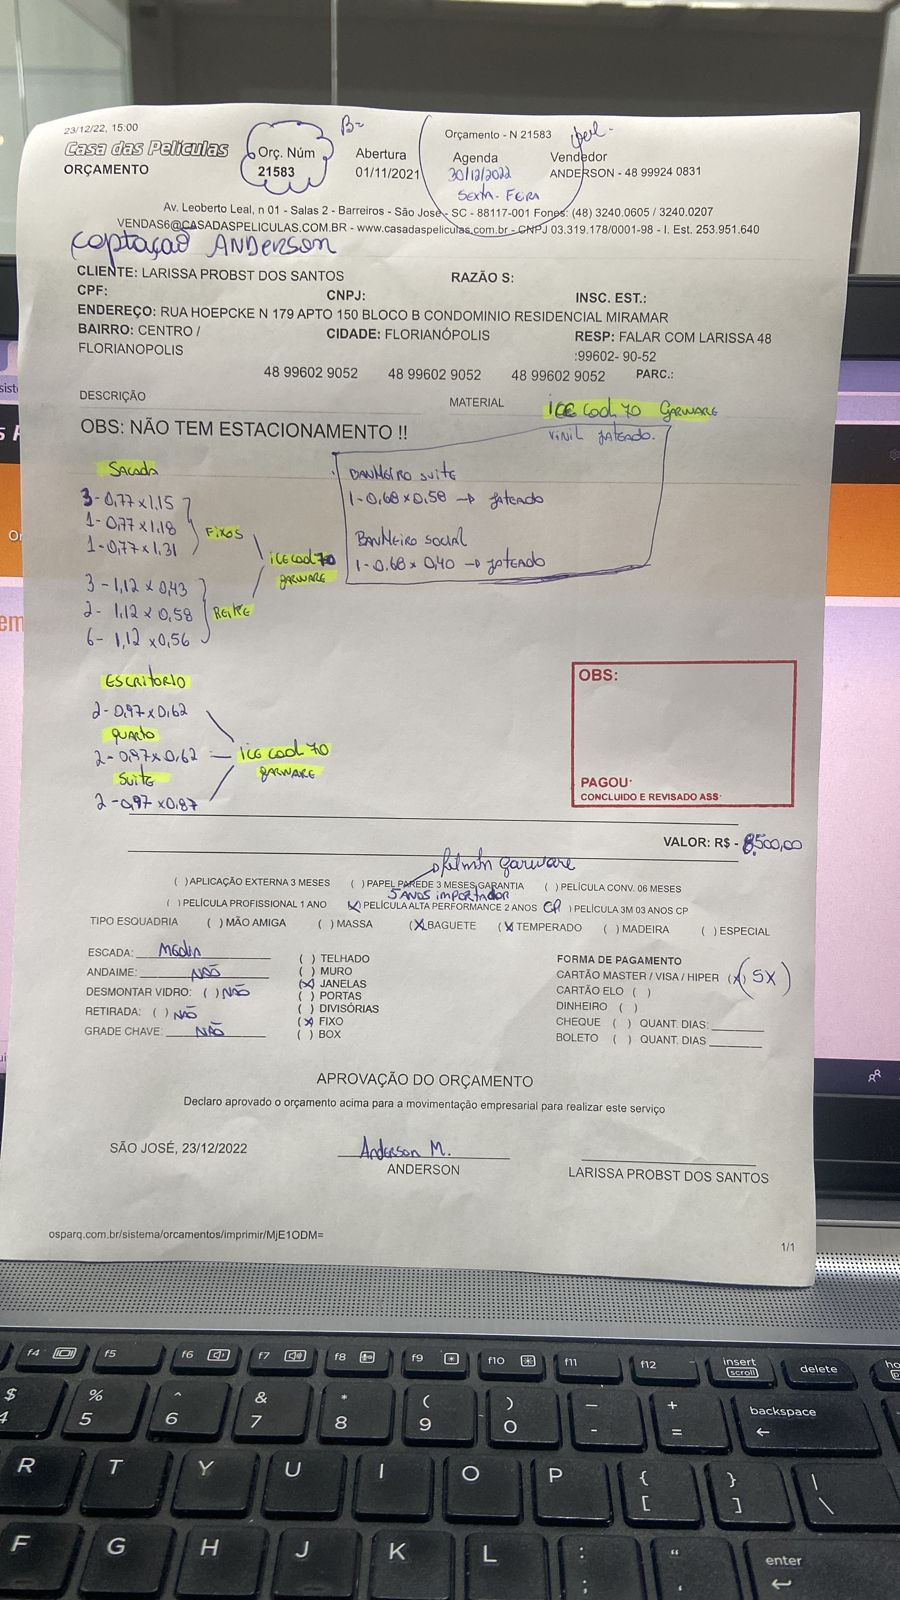 23/12/22, 15:00
Casa das Películas
ORÇAMENTO
Orç. Núm
21583
B=
Abertura
01/11/2021
Orçamento - N 21583
Agenda
30/12/2022
Sexta-FEIRA
Vendedor
ANDERSON - 48 99924 0831
Av. Leoberto Leal, n 01 - Salas 2 - Barreiros - São José - SC - 88117-001 Fones: (48) 3240.0605 / 3240.0207
VENDAS6@CASADASPELICULAS.COM.BR - www.casadaspeliculas.com.br - CNPJ 03.319.178/0001-98 - I. Est. 253.951.640
Coptação ANDERSON
CLIENTE: LARISSA PROBST DOS SANTOS RAZÃO S:
CPF: CNPJ: INSC. EST.:
ENDEREÇO: RUA HOEPCKE N 179 APTO 150 BLOCO B CONDOMINIO RESIDENCIAL MIRAMAR
BAIRRO: CENTRO / CIDADE: FLORIANÓPOLIS RESP: FALAR COM LARISSA 48
FLORIANOPOLIS :99602- 90-52
48 99602 9052 48 99602 9052 48 99602 9052 PARC.:
DESCRIÇÃO MATERIAL ice cool 70 GARWARE
OBS: NÃO TEM ESTACIONAMENTO !! VINIL JATEADO.
SACADA
3-0,77x1,15
1-0,77x1,18
1-0,77x1,31
FIXOS
3-1,12x0,43
2-1,12x0,58
6-1,12x0,56
ice cool 70
GARWARE
BANHEIRO SUITE
1-0,68x0,58 → JATEADO
BANHEIRO SOCIAL
1-0.68x0,40 → JATEADO
ESCRITORIO
2-0,97x0,62
QUARTO
2-0,97x0,62
SUITE
2-0,97x0,87
ice cool 70
GARWARE
OBS:
PAGOU·
CONCLUIDO E REVISADO ASS·
VALOR: R$ - 8.500,00
garware
( ) APLICAÇÃO EXTERNA 3 MESES ( ) PAPEL PAREDE 3 MESES GARANTIA ( ) PELÍCULA CONV. 06 MESES
5 ANOS importador
( ) PELÍCULA PROFISSIONAL 1 ANO (x) PELÍCULA ALTA PERFORMANCE 2 ANOS CP ( ) PELÍCULA 3M 03 ANOS CP
TIPO ESQUADRIA ( ) MÃO AMIGA ( ) MASSA (x) BAGUETE (x) TEMPERADO ( ) MADEIRA ( ) ESPECIAL
ESCADA: MEDIA
ANDAIME: NÃO
DESMONTAR VIDRO: ( ) NÃO
RETIRADA: ( ) NÃO
GRADE CHAVE: NÃO
( ) TELHADO
( ) MURO
(x) JANELAS
( ) PORTAS
( ) DIVISÓRIAS
(x) FIXO
( ) BOX
FORMA DE PAGAMENTO
CARTÃO MASTER / VISA / HIPER (x) 5X
CARTÃO ELO ( )
DINHEIRO ( )
CHEQUE ( ) QUANT. DIAS:
BOLETO ( ) QUANT. DIAS
APROVAÇÃO DO ORÇAMENTO
Declaro aprovado o orçamento acima para a movimentação empresarial para realizar este serviço
SÃO JOSÉ, 23/12/2022
Anderson M.
ANDERSON
LARISSA PROBST DOS SANTOS
osparq.com.br/sistema/orcamentos/imprimir/MjE1ODM=
1/1
f4 f5 f6 f7 f8 f9 f10 f11 f12 insert delete
scroll
$ % ^ & * ( ) _ + backspace
4 5 6 7 8 9 0 - =
R T Y U I O P { } |
[ ] \
F G H J K L : " enter
; '